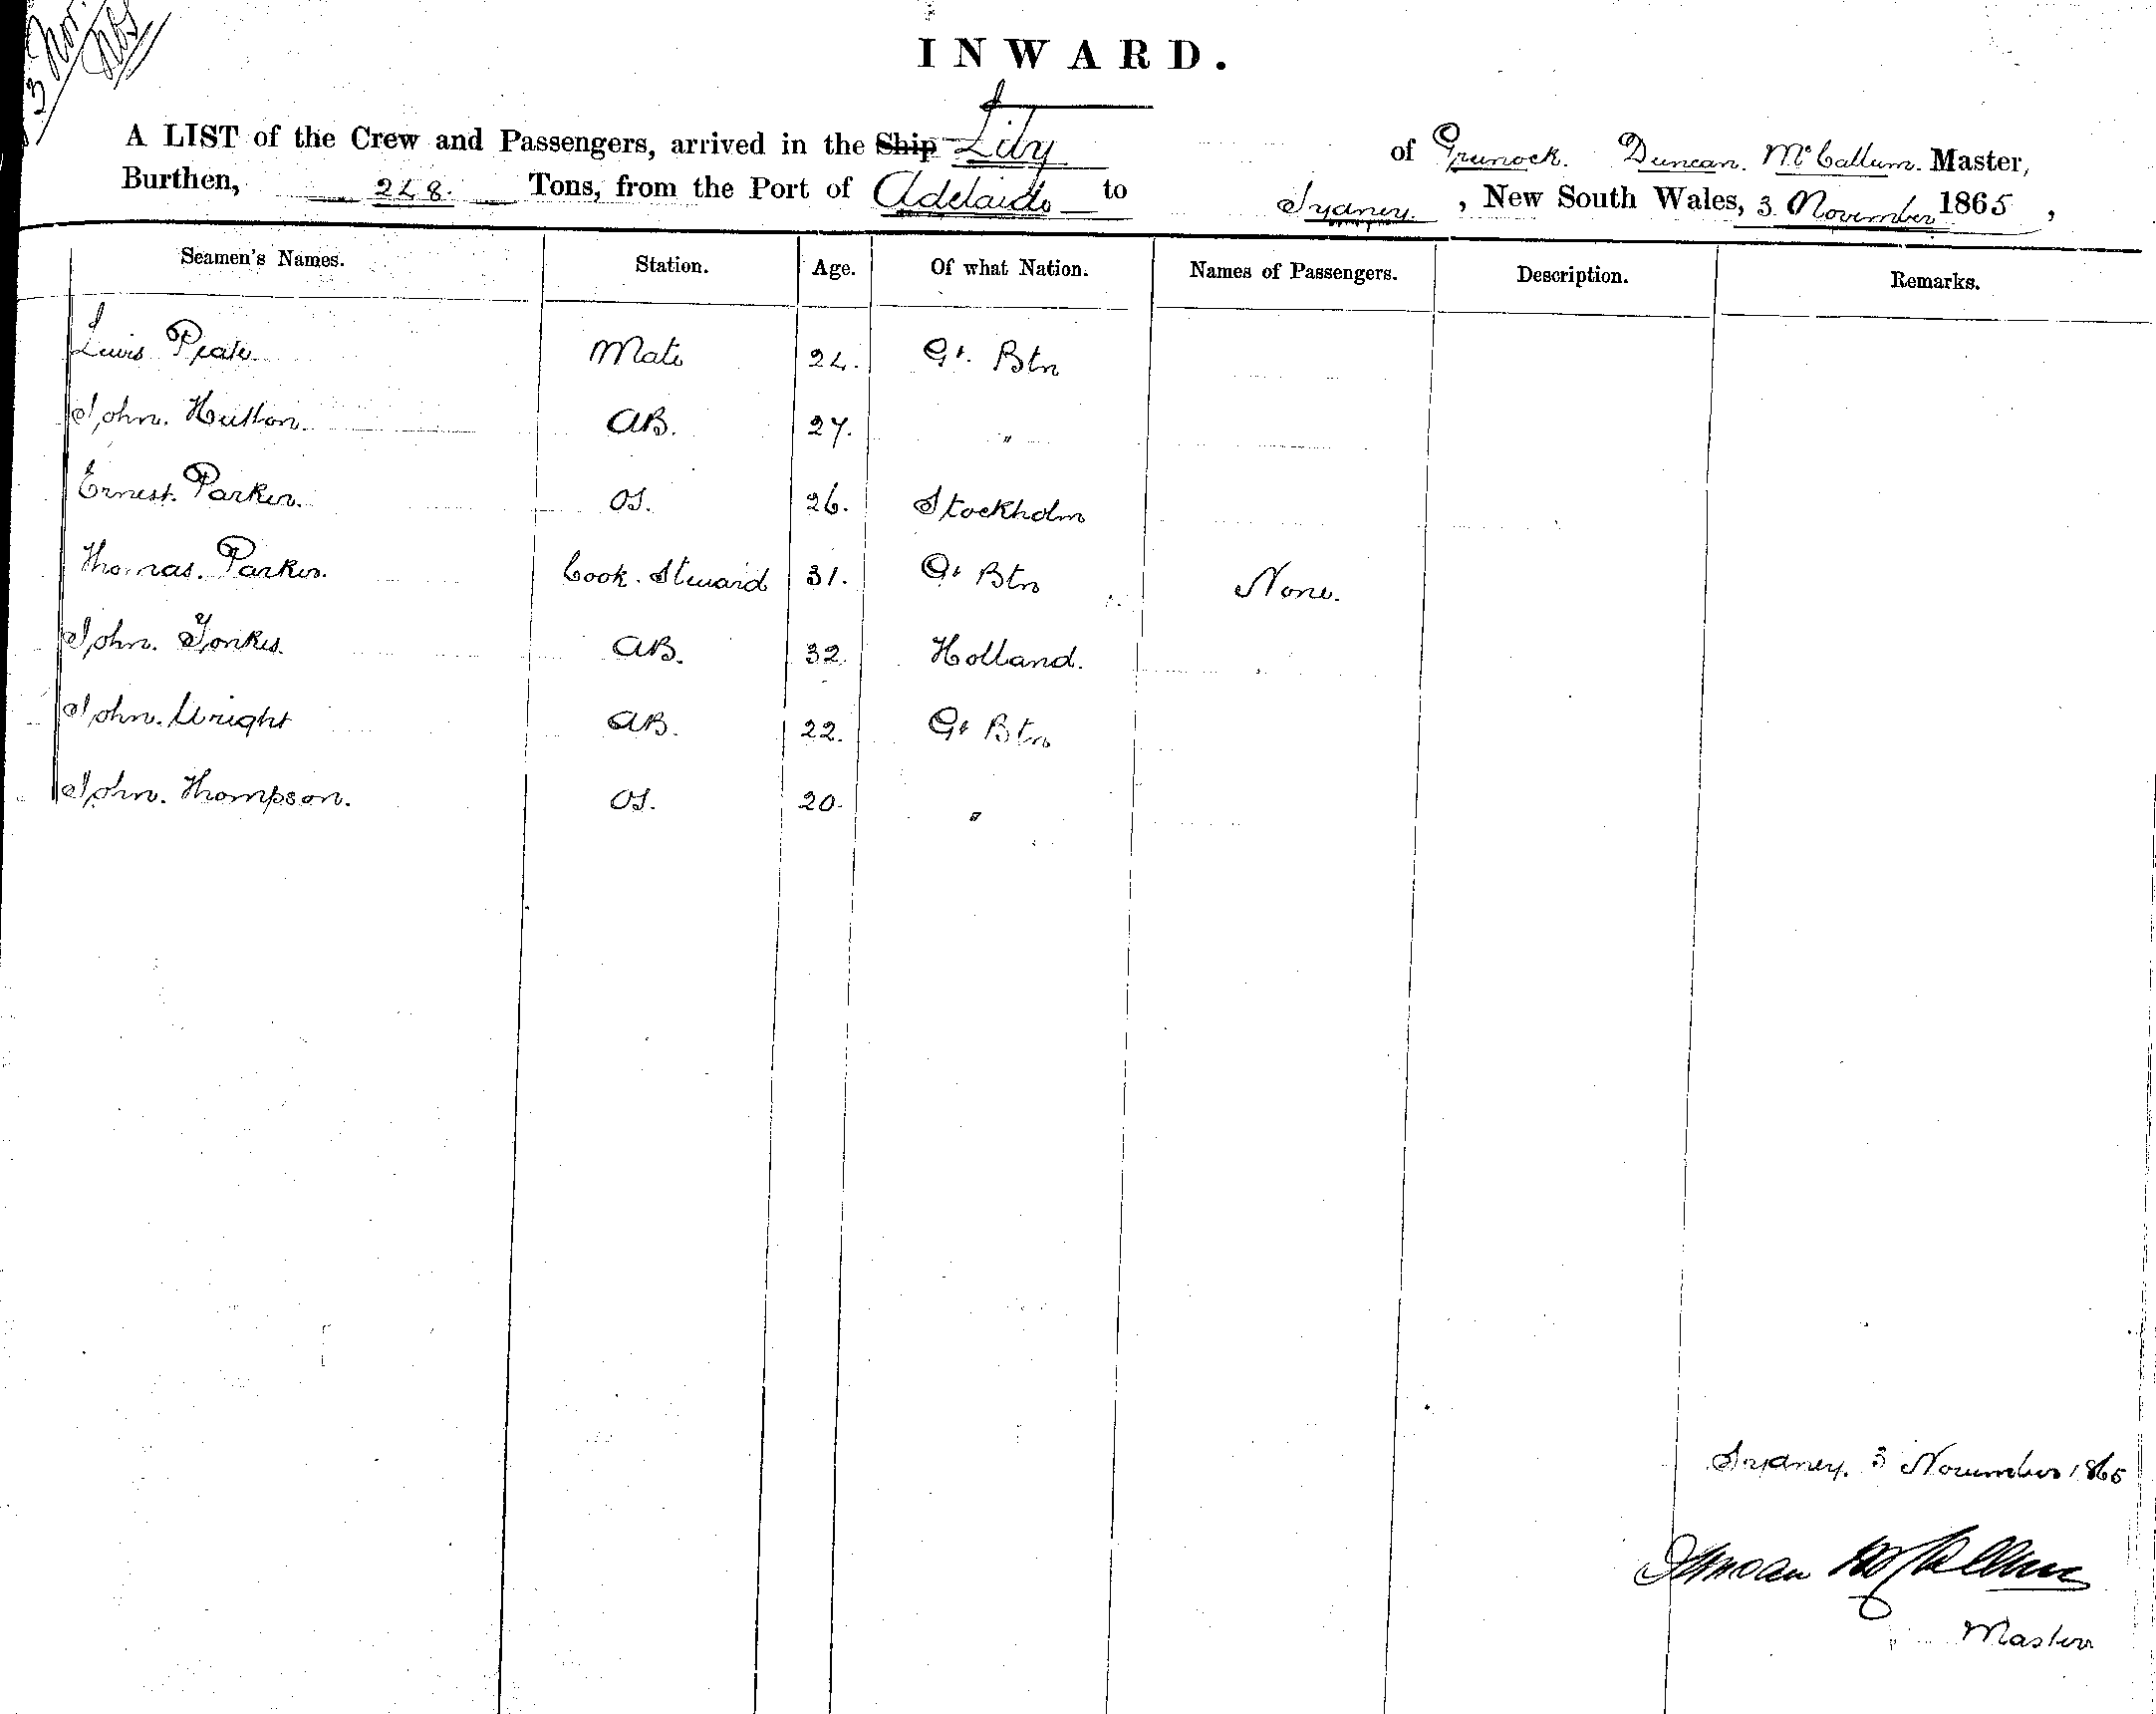 3 Nov.
INWARD.
A LIST of the Crew and Passengers, arrived in the Ship Lily of Greenock. Duncan. McCallum. Master,
Burthen, 248. Tons, from the Port of Adelaide to Sydney. , New South Wales, 3. November 1865 ,
Seamen's Names. Station. Age. Of what Nation. Names of Passengers. Description. Remarks.
Lewis Peate Mate 24. Gt. Btn
John. Hutton. AB. 27. "
Ernest. Parker. OS. 26. Stockholm
Thomas. Parker. Cook. Steward 31. Gt Btn None.
John. Jonkes. AB. 32. Holland.
John. Wright AB. 22. Gt Btn
John. Thompson. OS. 20. "
Sydney. 3 November 1865
Duncan McCallum
Master